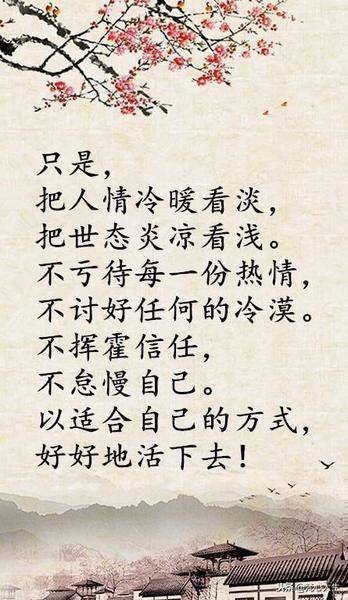 只是，
把人情冷暖看淡，
把世态炎凉看浅。
不亏待每一份热情，
不讨好任何的冷漠。
不挥霍信任，
不怠慢自己。
以适合自己的方式，
好好地活下去！